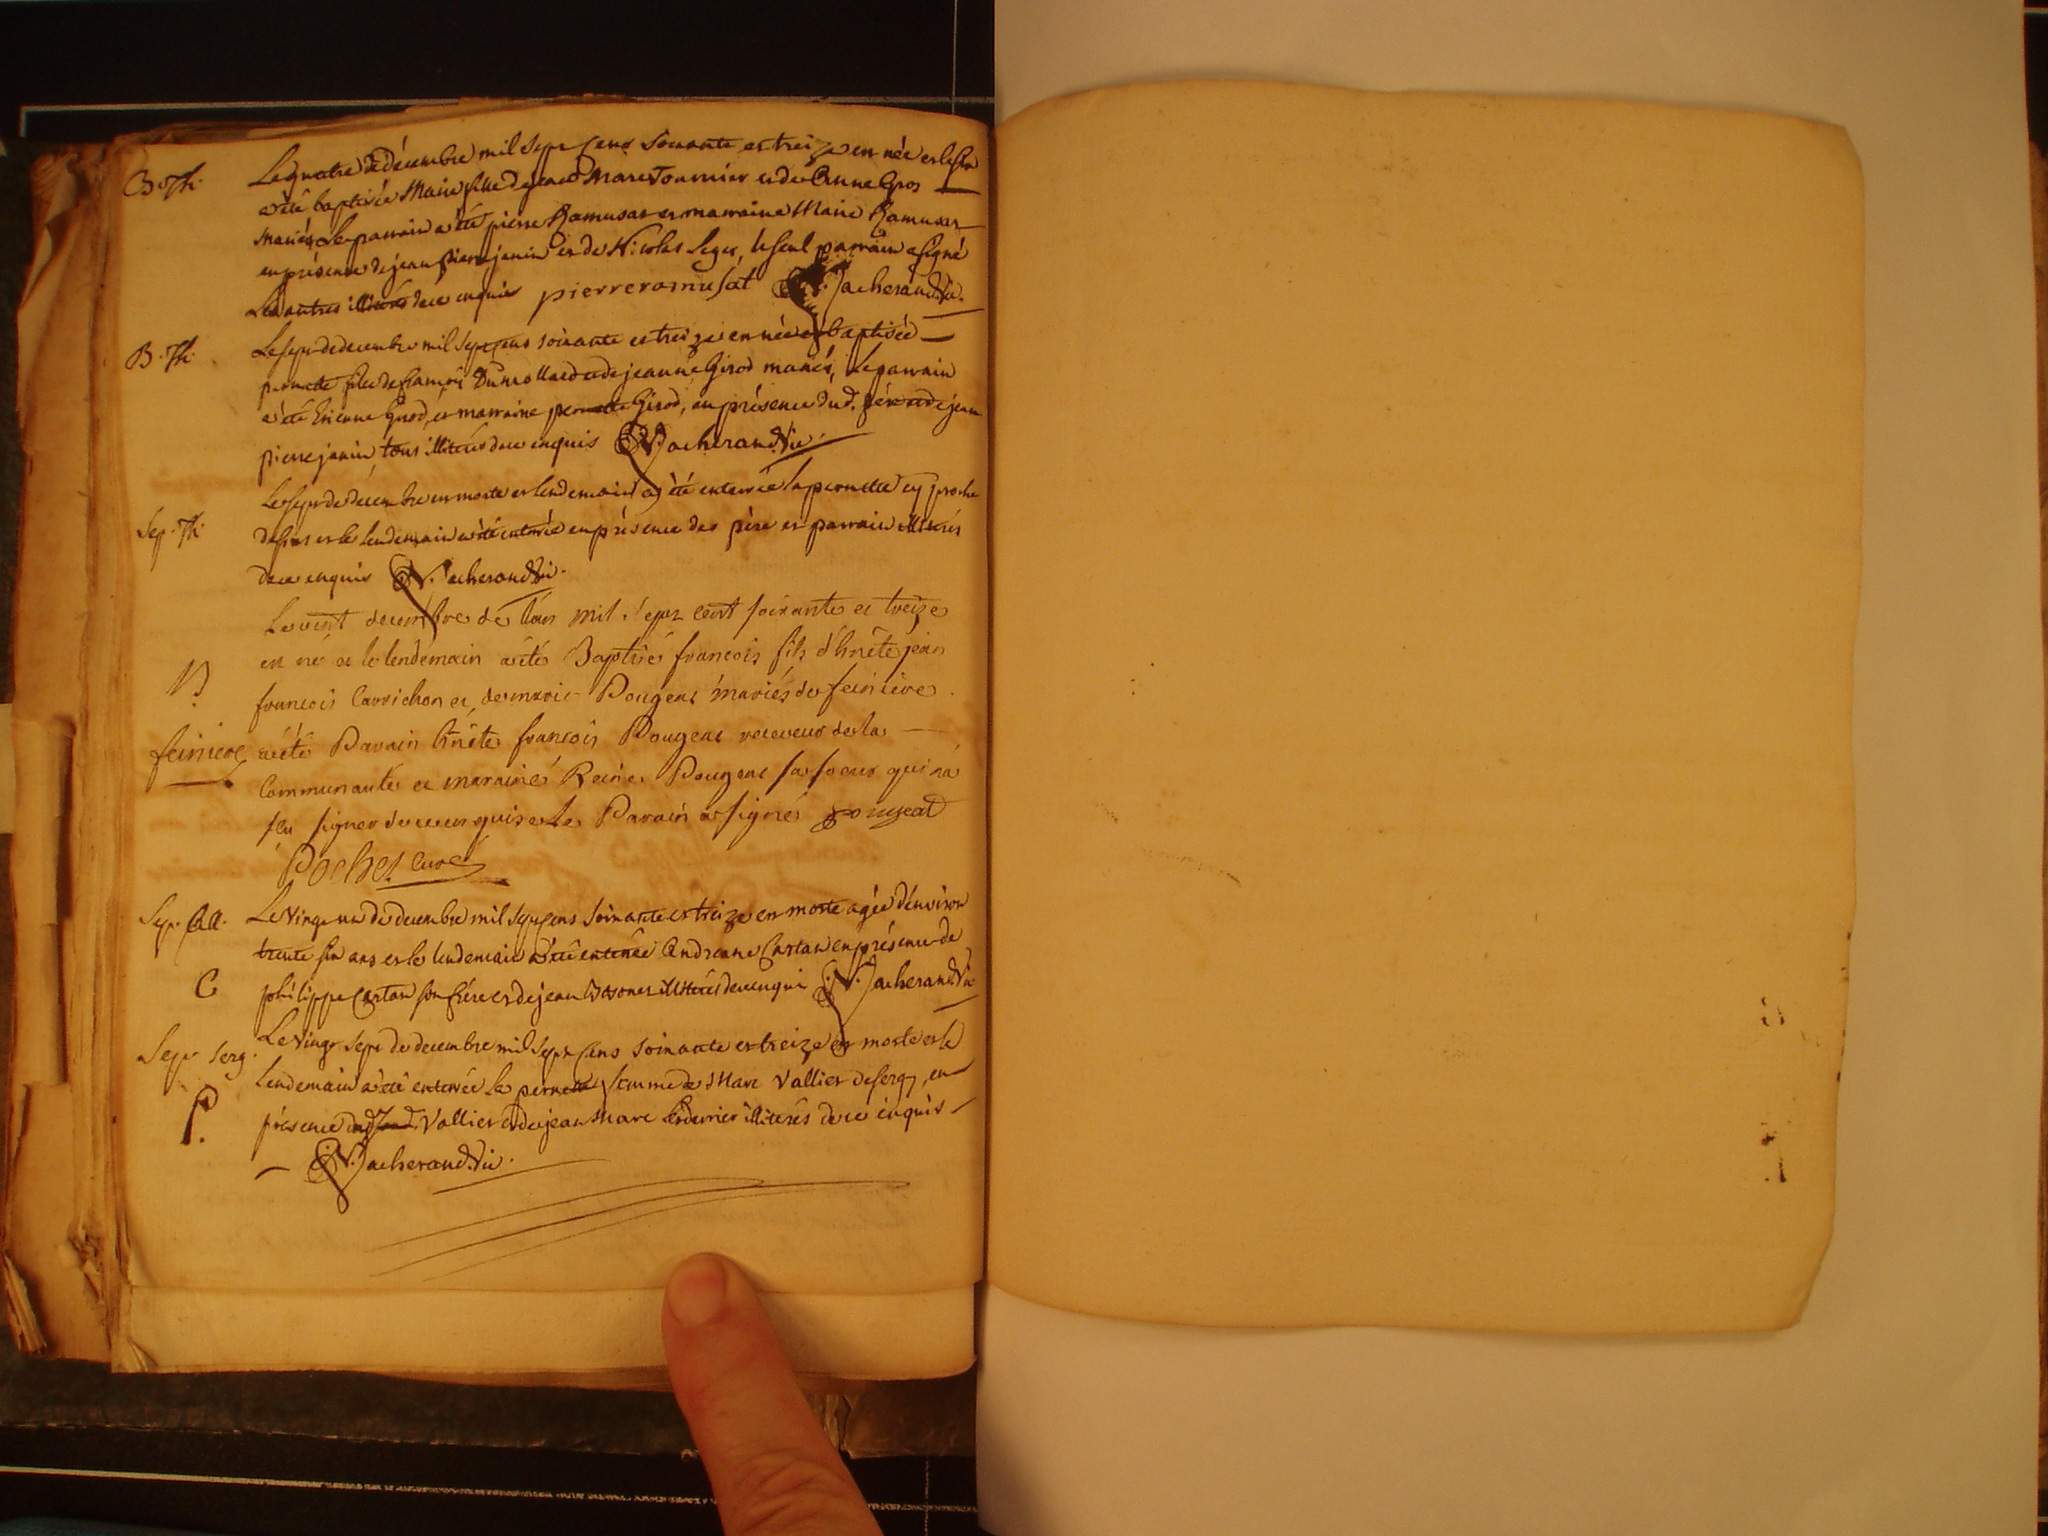 B. Th. Le quatre de décembre mil sept cens soixante et treize est née et le six
a été baptisée Marie fille de jean Marc Tournier et de Anne Gros
mariés, Le parrain a été pierre Ramusat et marraine Marie Ramusat
en présence de jean pierre janin et de Nicolas Leger, le seul parrain a signé
Les autres illiterés de ce enquis pierre ramusat Vacherand Vic.
B. Th. Le sept de decembre mil sept cens soixante et treize est née et baptisée
pernette fille de françois Dunnollard et de jeanne Girod mariés, Le parrain
a été Etienne Girod, et marraine pernette Girod, en présence dud. père et de jean
pierre janin tous illiterés de ce enquis Vacherand Vic.
Le sept de décembre est morte et lendemain a été enterrée la pernette cy proche
Sep. Th. et le lendemain a été enterrée en présence des père et parrain illiterés
de ce enquis Vacherand Vic.
Le vint decembre de l'an mil sept cent soixante et treize
est né et le lendemain a été Baptisé francois fils d'hnête jean
B francois Carrichon et de marie Pougeat mariés de feiniere
feiniere a été Parain hnête francois Pougeat receveur de la
Communauté et maraine Reine Pougeat sa soeur qui n'a
scu signer de ce enquise Le Parain a signé pougeat
Pochet Curé
Sep. Coll. Le vingt un de decembre mil sept cens soixante et treize est morte agée d'environ
trente six ans et le lendemain a été enterrée Andreane Cartan en présence de
C philippe Cartan son frère et de jean illiterés de ce enquis Vacherand Vic
Sep. Serg. Le vingt sept de decembre mil sept cens soixante et treize est morte et le
lendemain a été enterrée la pernette femme de Marc Vallier de sergy, en
P. présence dud. Vallier et de jean Marc illiterés de ce enquis
Vacherand Vic.